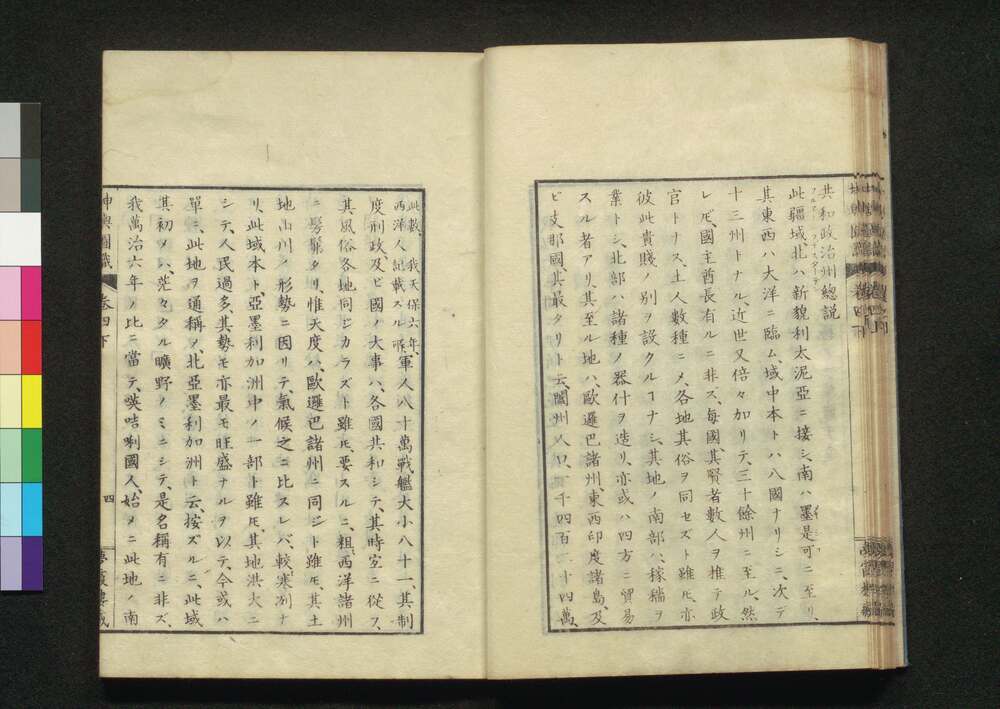 共和政治州總説
此疆域、北ハ新貌利太泥亞ニ接シ、南ハ墨是可ニ至リ、
其東西ハ大洋ニ臨ム、域中本ト八國ナリシニ、次テ
十三州トナル、近世又倍々加リテ、三十餘州ニ至ル、然
レ𪜈、國主酋長有ルニ非ス、毎國其賢者數人ヲ推テ政
官トナス、土人數種ニメ、各地其俗ヲ同セズト雖𪜈、亦
彼此貴賤ノ別ヲ設クルヿナシ、其地ノ南部ハ、稼穡ヲ
業トシ、北部ハ諸種ノ器什ヲ造リ、亦或ハ四方ニ貿易
スル者アリ、其至ル地ハ、歐邏巴諸州、東西印度諸島、及
ビ支那國其最タリト云、闔州人口、千四百二十四萬、
此數、我天保六年、
西洋人記載スル所
軍人八十萬、戰艦大小八十一、其制
度刑政、及ビ國ノ大事ハ、各國共和シテ、其時宜ニ從フ、
其風俗各地同ジカラズト雖𪜈、要スルニ、粗西洋諸州
ニ髣髴タリ、惟天度ハ、歐邏巴諸州ニ同ジト雖𪜈、其土
地山川ノ形勢ニ因リテ氣候之ニ比スレバ、較寒冽ナ
リ、此域本ト、亞墨利加洲中ノ一部ト雖𪜈、其地洪大ニ
シテ、人民過多、其勢モ亦最モ旺盛ナルヲ以テ、今或ハ
單ニ、此地ヲ通稱メ、北亞墨利加洲ト云、按ズルニ、此域
其初メハ、茫々タル曠野ノミニシテ、是名稱有ニ非ズ、
我萬治六年ノ比ニ當テ、暎咭唎國人、始メニ此地ノ南
坤輿圖識 卷四下 四